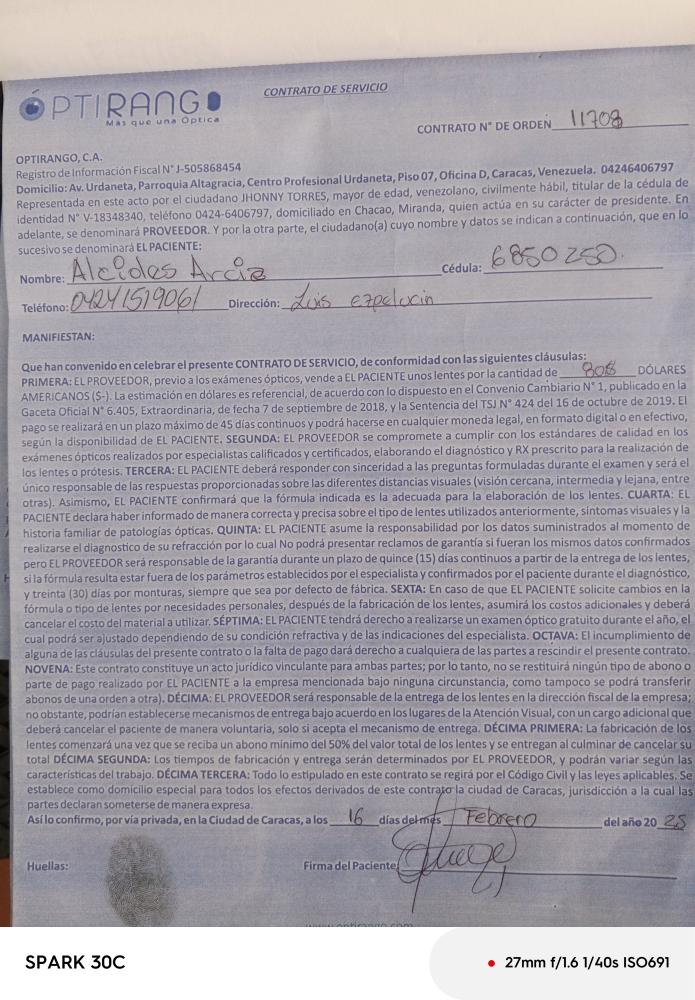 CONTRATO DE SERVICIO
ÓPTIRANGO
Más que una Óptica
CONTRATO N° DE ORDEN 11708
OPTIRANGO, C.A.
Registro de Información Fiscal N° J-505868454
Domicilio: Av. Urdaneta, Parroquia Altagracia, Centro Profesional Urdaneta, Piso 07, Oficina D, Caracas, Venezuela. 04246406797
Representada en este acto por el ciudadano JHONNY TORRES, mayor de edad, venezolano, civilmente hábil, titular de la cédula de
identidad N° V-18348340, teléfono 0424-6406797, domiciliado en Chacao, Miranda, quien actúa en su carácter de presidente. En
adelante, se denominará PROVEEDOR. Y por la otra parte, el ciudadano(a) cuyo nombre y datos se indican a continuación, que en lo
sucesivo se denominará EL PACIENTE:
Nombre: Alcides Arcia Cédula: 6850250.
Teléfono: 04241519061 Dirección: Luis
MANIFIESTAN:
Que han convenido en celebrar el presente CONTRATO DE SERVICIO, de conformidad con las siguientes cláusulas:
PRIMERA: EL PROVEEDOR, previo a los exámenes ópticos, vende a EL PACIENTE unos lentes por la cantidad de DÓLARES
AMERICANOS ($-). La estimación en dólares es referencial, de acuerdo con lo dispuesto en el Convenio Cambiario N° 1, publicado en la
Gaceta Oficial N° 6.405, Extraordinaria, de fecha 7 de septiembre de 2018, y la Sentencia del TSJ N° 424 del 16 de octubre de 2019. El
pago se realizará en un plazo máximo de 45 días continuos y podrá hacerse en cualquier moneda legal, en formato digital o en efectivo,
según la disponibilidad de EL PACIENTE. SEGUNDA: EL PROVEEDOR se compromete a cumplir con los estándares de calidad en los
exámenes ópticos realizados por especialistas calificados y certificados, elaborando el diagnóstico y RX prescrito para la realización de
los lentes o prótesis. TERCERA: EL PACIENTE deberá responder con sinceridad a las preguntas formuladas durante el examen y será el
único responsable de las respuestas proporcionadas sobre las diferentes distancias visuales (visión cercana, intermedia y lejana, entre
otras). Asimismo, EL PACIENTE confirmará que la fórmula indicada es la adecuada para la elaboración de los lentes. CUARTA: EL
PACIENTE declara haber informado de manera correcta y precisa sobre el tipo de lentes utilizados anteriormente, síntomas visuales y la
historia familiar de patologías ópticas. QUINTA: EL PACIENTE asume la responsabilidad por los datos suministrados al momento de
realizarse el diagnostico de su refracción por lo cual No podrá presentar reclamos de garantía si fueran los mismos datos confirmados
pero EL PROVEEDOR será responsable de la garantía durante un plazo de quince (15) días continuos a partir de la entrega de los lentes,
si la fórmula resulta estar fuera de los parámetros establecidos por el especialista y confirmados por el paciente durante el diagnóstico,
y treinta (30) días por monturas, siempre que sea por defecto de fábrica. SEXTA: En caso de que EL PACIENTE solicite cambios en la
fórmula o tipo de lentes por necesidades personales, después de la fabricación de los lentes, asumirá los costos adicionales y deberá
cancelar el costo del material a utilizar. SÉPTIMA: EL PACIENTE tendrá derecho a realizarse un examen óptico gratuito durante el año, el
cual podrá ser ajustado dependiendo de su condición refractiva y de las indicaciones del especialista. OCTAVA: El incumplimiento de
alguna de las cláusulas del presente contrato o la falta de pago dará derecho a cualquiera de las partes a rescindir el presente contrato.
NOVENA: Este contrato constituye un acto jurídico vinculante para ambas partes; por lo tanto, no se restituirá ningún tipo de abono o
parte de pago realizado por EL PACIENTE a la empresa mencionada bajo ninguna circunstancia, como tampoco se podrá transferir
abonos de una orden a otra). DÉCIMA: EL PROVEEDOR será responsable de la entrega de los lentes en la dirección fiscal de la empresa;
no obstante, podrían establecerse mecanismos de entrega bajo acuerdo en los lugares de la Atención Visual, con un cargo adicional que
deberá cancelar el paciente de manera voluntaria, solo si acepta el mecanismo de entrega. DÉCIMA PRIMERA: La fabricación de los
lentes comenzará una vez que se reciba un abono mínimo del 50% del valor total de los lentes y se entregan al culminar de cancelar su
total DÉCIMA SEGUNDA: Los tiempos de fabricación y entrega serán determinados por EL PROVEEDOR, y podrán variar según las
características del trabajo. DÉCIMA TERCERA: Todo lo estipulado en este contrato se regirá por el Código Civil y las leyes aplicables. Se
establece como domicilio especial para todos los efectos derivados de este contrato la ciudad de Caracas, jurisdicción a la cual las
partes declaran someterse de manera expresa.
Así lo confirmo, por vía privada, en la Ciudad de Caracas, a los 16 días del mes Febrero del año 20 25
Huellas: Firma del Paciente
www.optirango.com
SPARK 30C
27mm f/1.6 1/40s ISO691